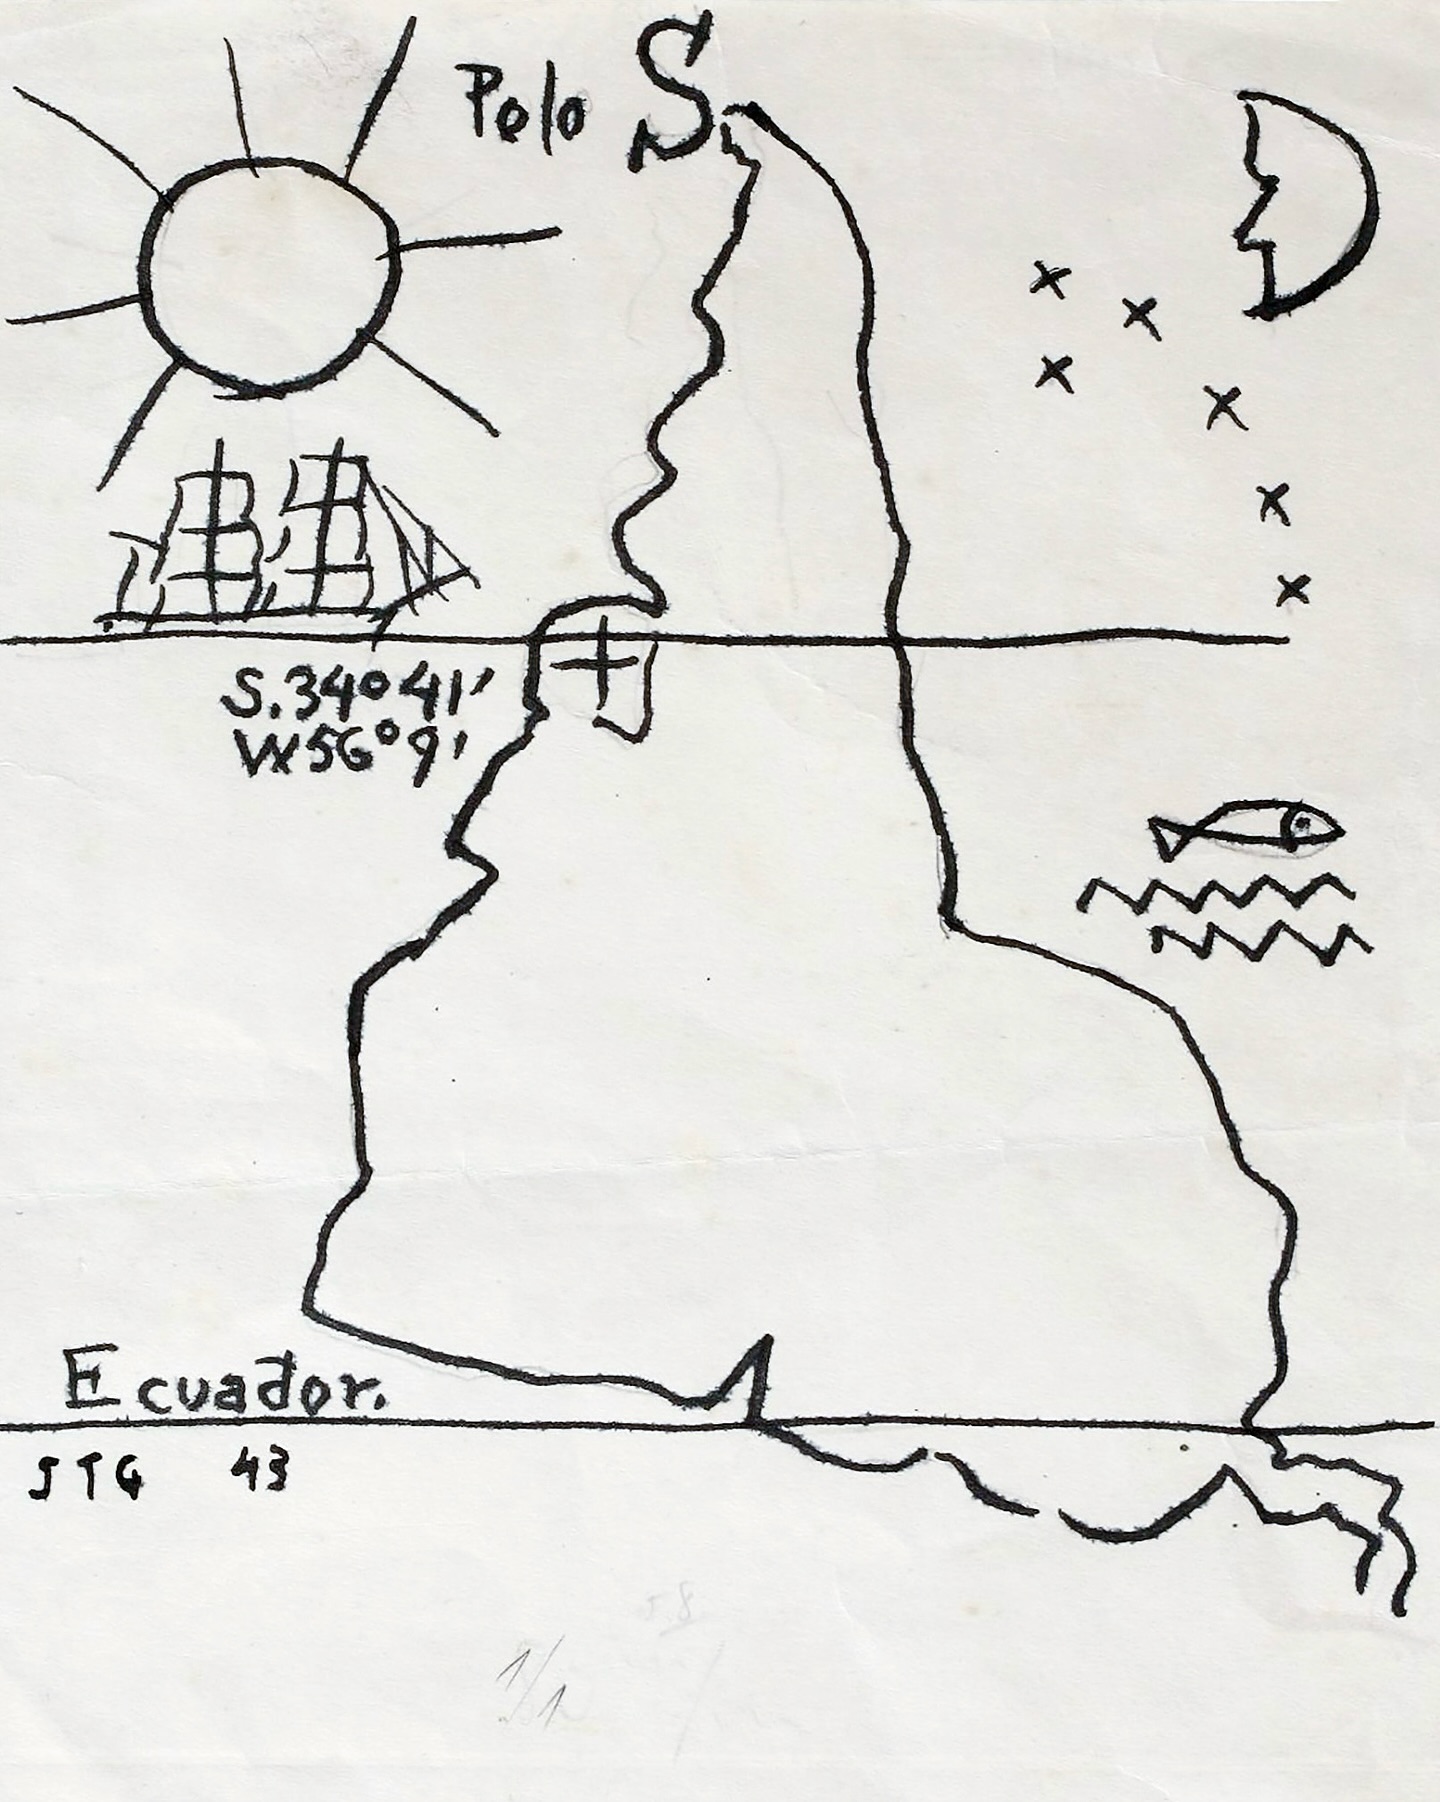 Polo S
S. 34° 41'
W 56° 9'
Ecuador.
JTG 43
1/1